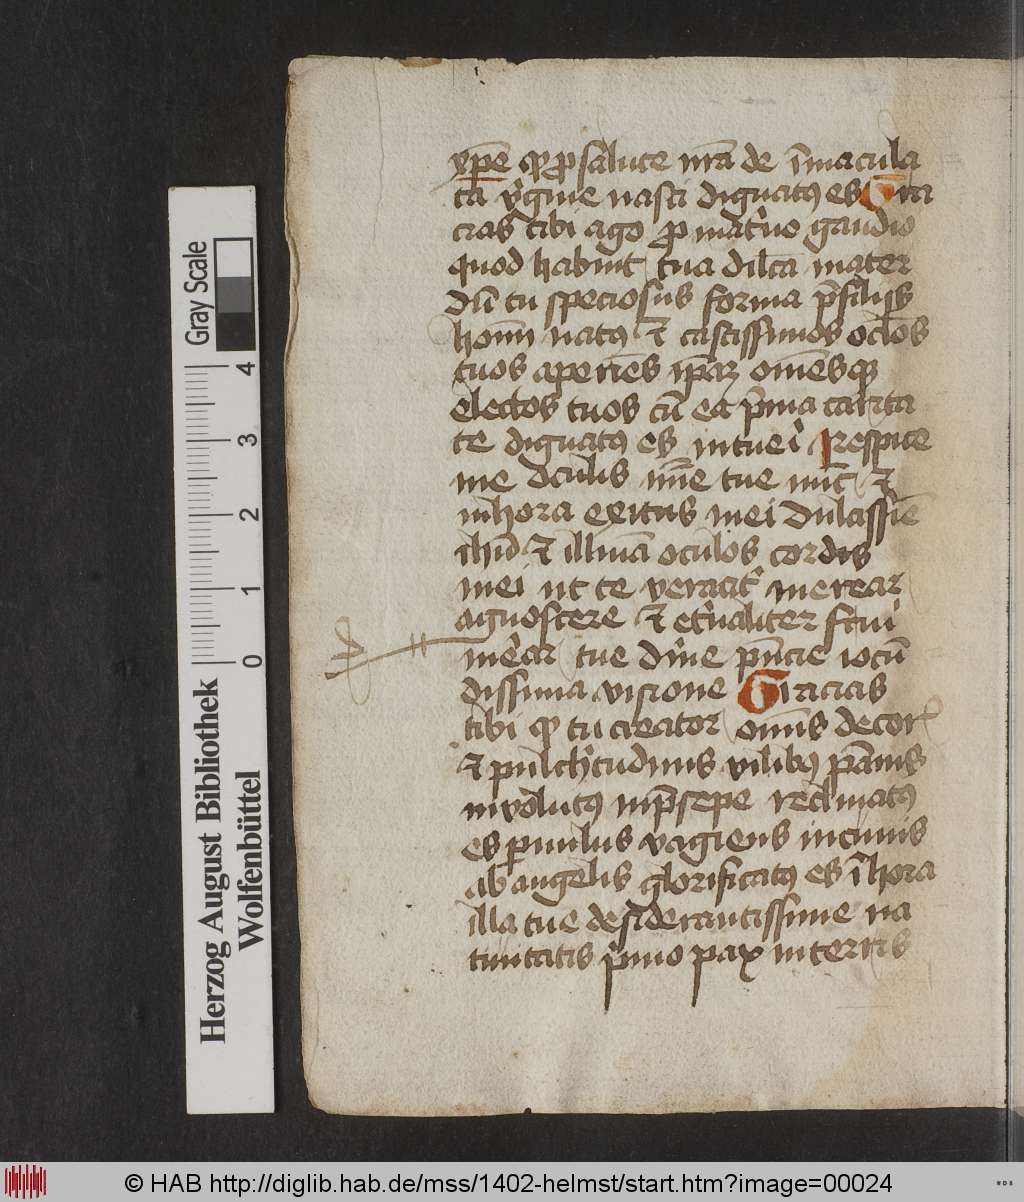 xpe̅ qz pro salute nr̅a de i̅macula
ta v'gine nasci dignatus es Gra
cias tibi ago pro mat'no gaudio
quod habuit tua dil̅ca mater
du̅ tu speciosus forma p̅ filiis
hom̅ natus et castissimos oc̅los
tuos aperie̅s ip̅az om̅esqz
electos tuos cu̅ ea p̅ma carita
te dignatus es intueri Respice
me oculis mi̅e tue nu̅c et
in hora exitus mei dulcissi̅e
ih̅u et illu̅ia oculos cordis
mei ut te veracit' merear
agnoscere et et'naliter frui
mer̅ear tue di̅ne pn̅cie iocu̅
dissima visione Gracias
tibi qz tu creator om̅is decor'
et pulch'tudinis vilibus pa̅nis
involutus in p̅sepe reclinatus
es parvulus vagiens in cunis
ab angelis glorificatus es i̅ hora
illa tue desiderantissime na
tivitatis p'mo pax in terris
Gray Scale
4
3
2
1
0
Herzog August Bibliothek
Wolfenbüttel
© HAB http://diglib.hab.de/mss/1402-helmst/start.htm?image=00024